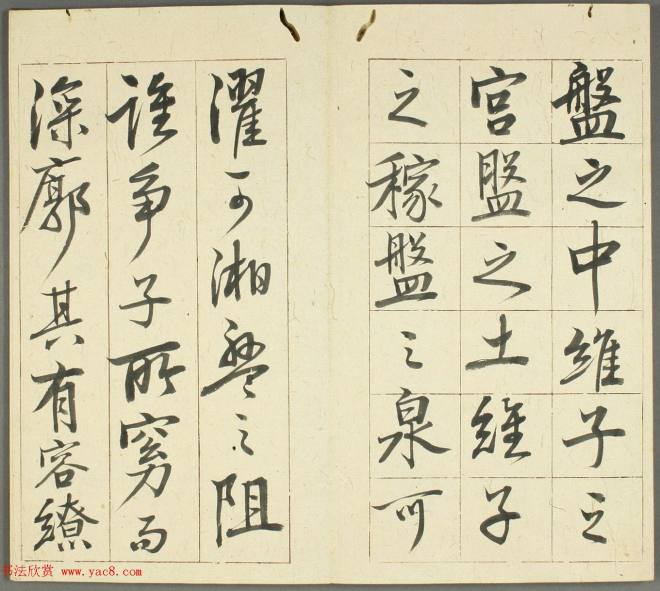 盤之中維子之
宫盤之土維子
之稼盤之泉可
濯可湘盤之阻
誰争子所窈而
深廓其有容繚
书法欣赏 www.yac8.com